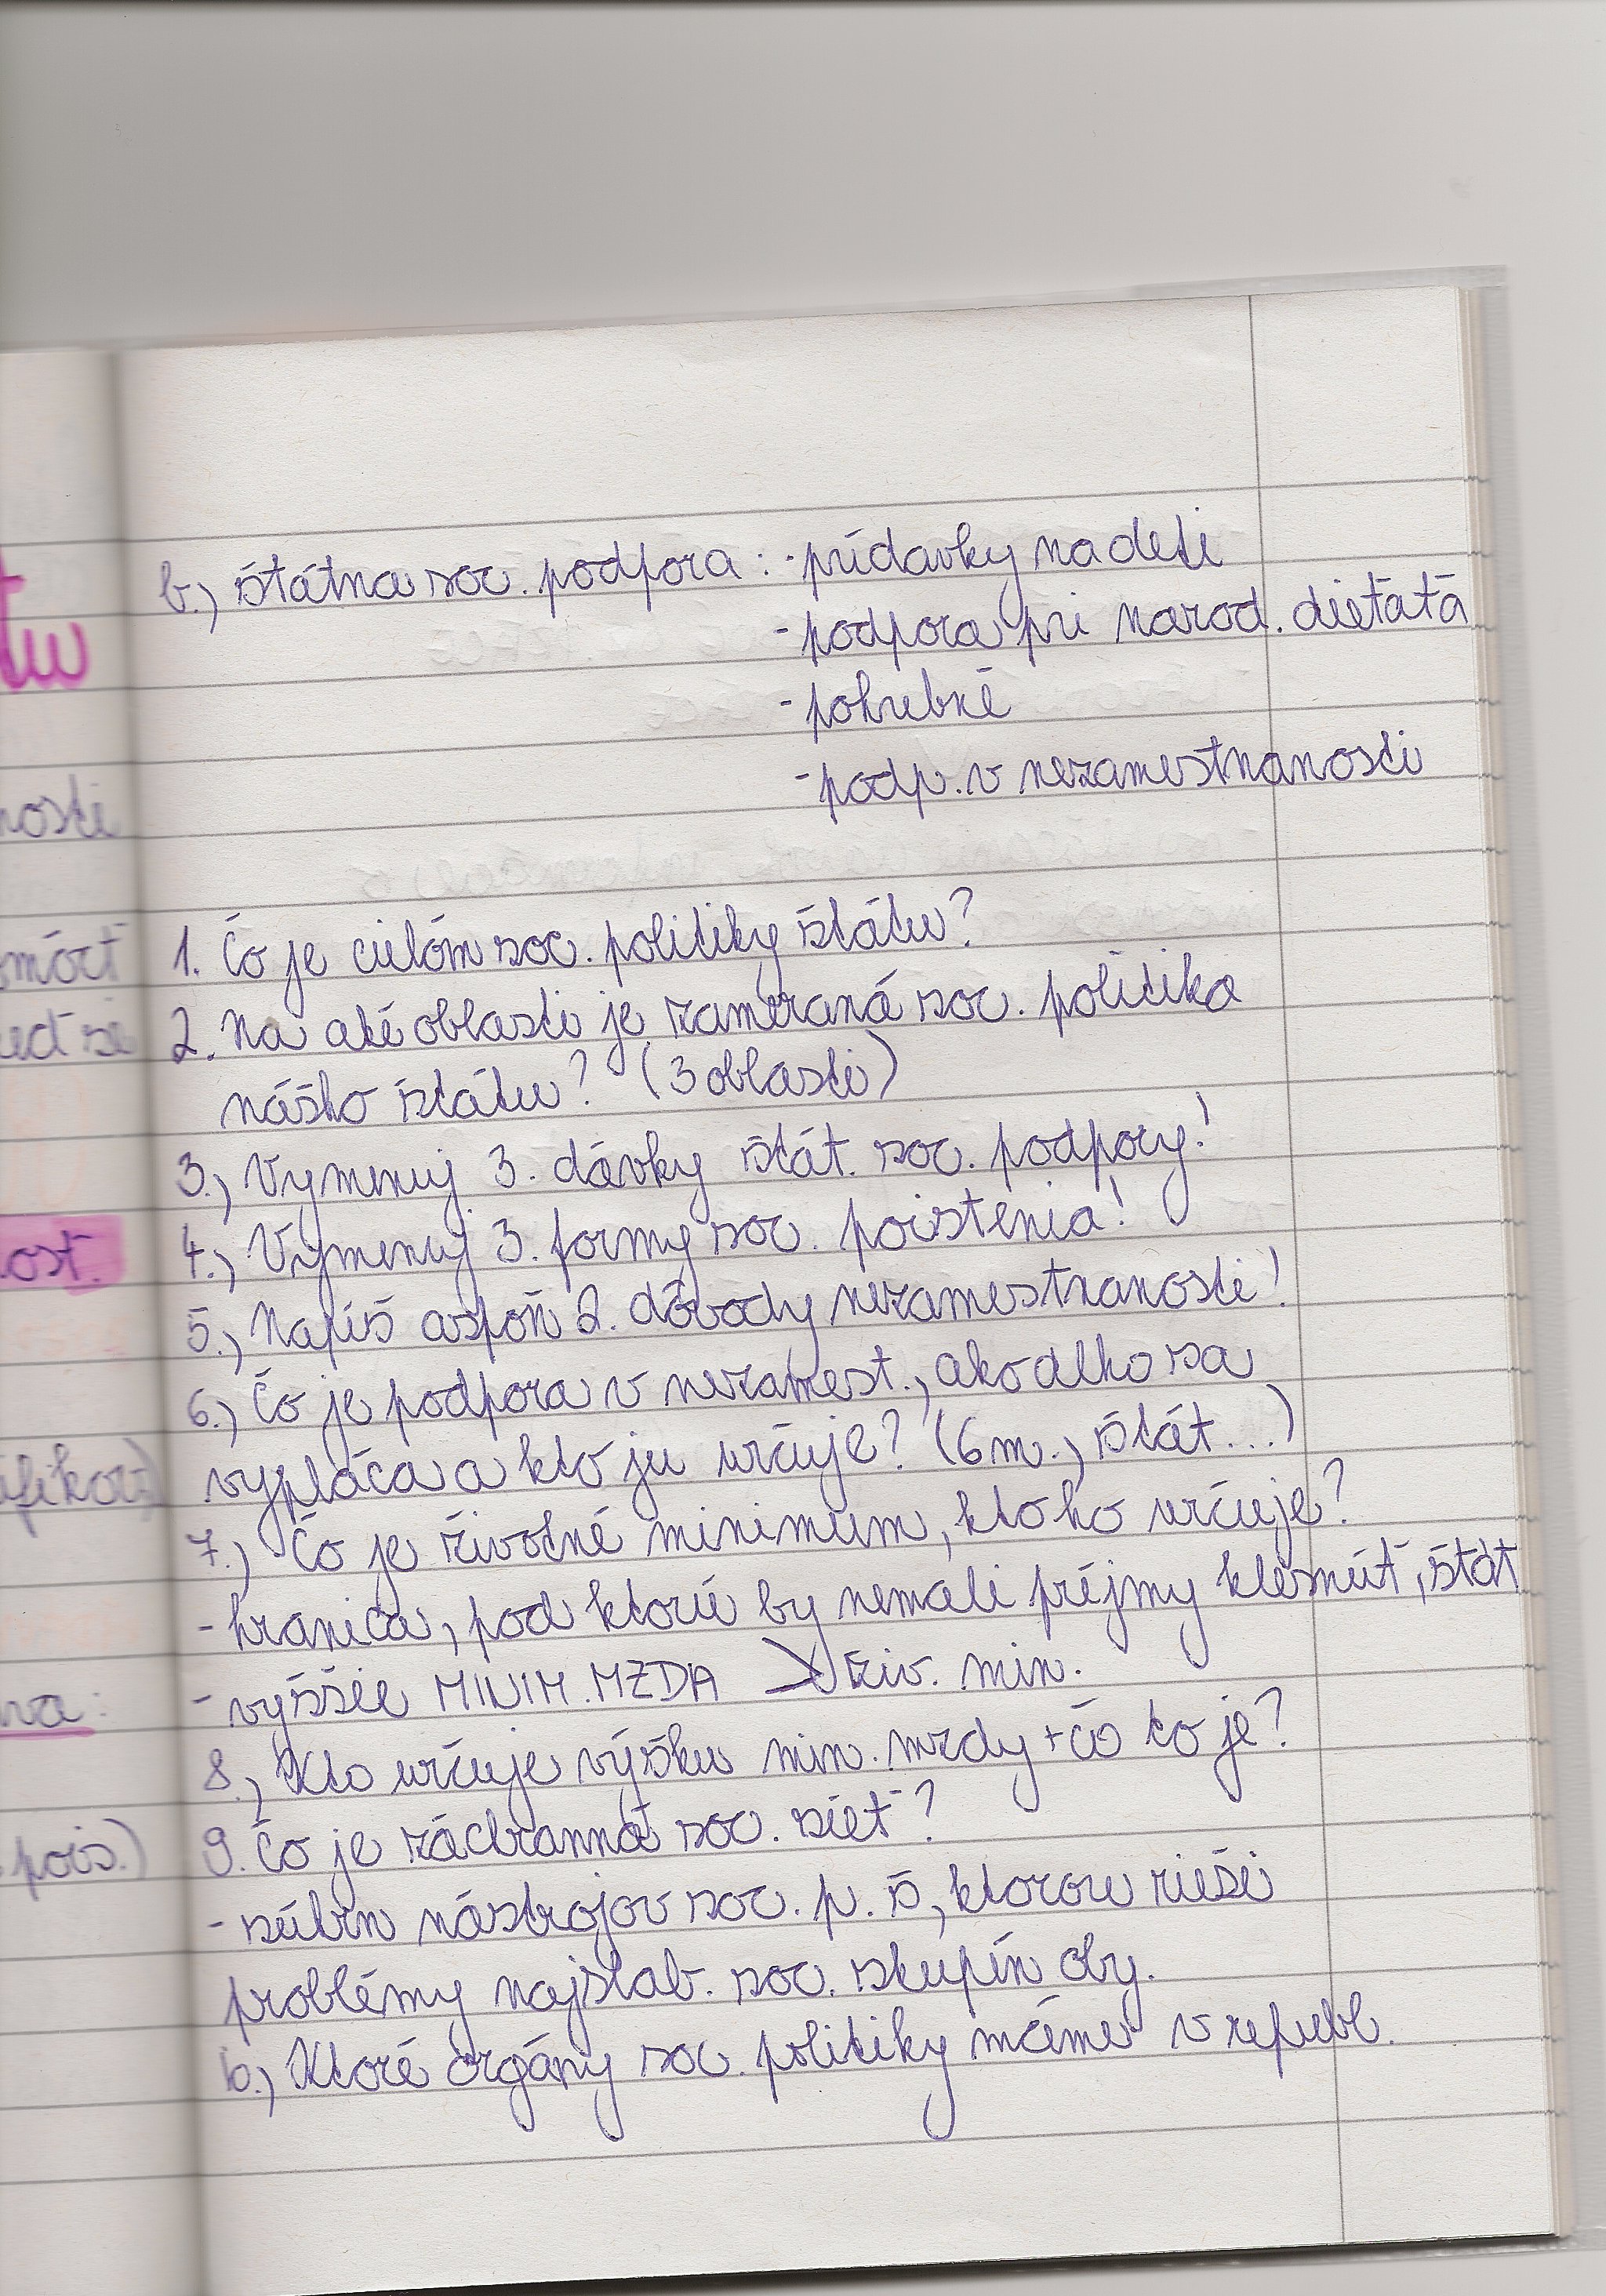 b.) štátna soc. podpora: - prídavky na deti
- podpora pri narod. dieťaťa
- pohrebné
- podp. v nezamestnanosti
1. Čo je cieľom soc. politiky štátu?
2. Na aké oblasti je zameraná soc. politika
nášho štátu? (3 oblasti)
3.) Vymenuj 3. dávky štát. soc. podpory!
4.) Vymenuj 3. formy soc. poistenia!
5.) Napíš aspoň 2. dôvody nezamestnanosti!
6.) Čo je podpora v nezamest., ako dlho sa
vypláca a kto ju určuje? (6 m., štát...)
7.) Čo je životné minimum, kto ho určuje?
- hranica, pod ktoré by nemali príjmy klesnúť, štát
- vyššie MINIM. MZDA > živ. min.
8.) Kto určuje výšku min. mzdy + čo to je?
9. Čo je záchranná soc. sieť?
- súbrn nástrojov soc. p. š, ktorou rieši
problémy najslab. soc. skupín oby.
10.) Ktoré orgány soc. politiky máme v republ.
nosti
ost.
pois.)